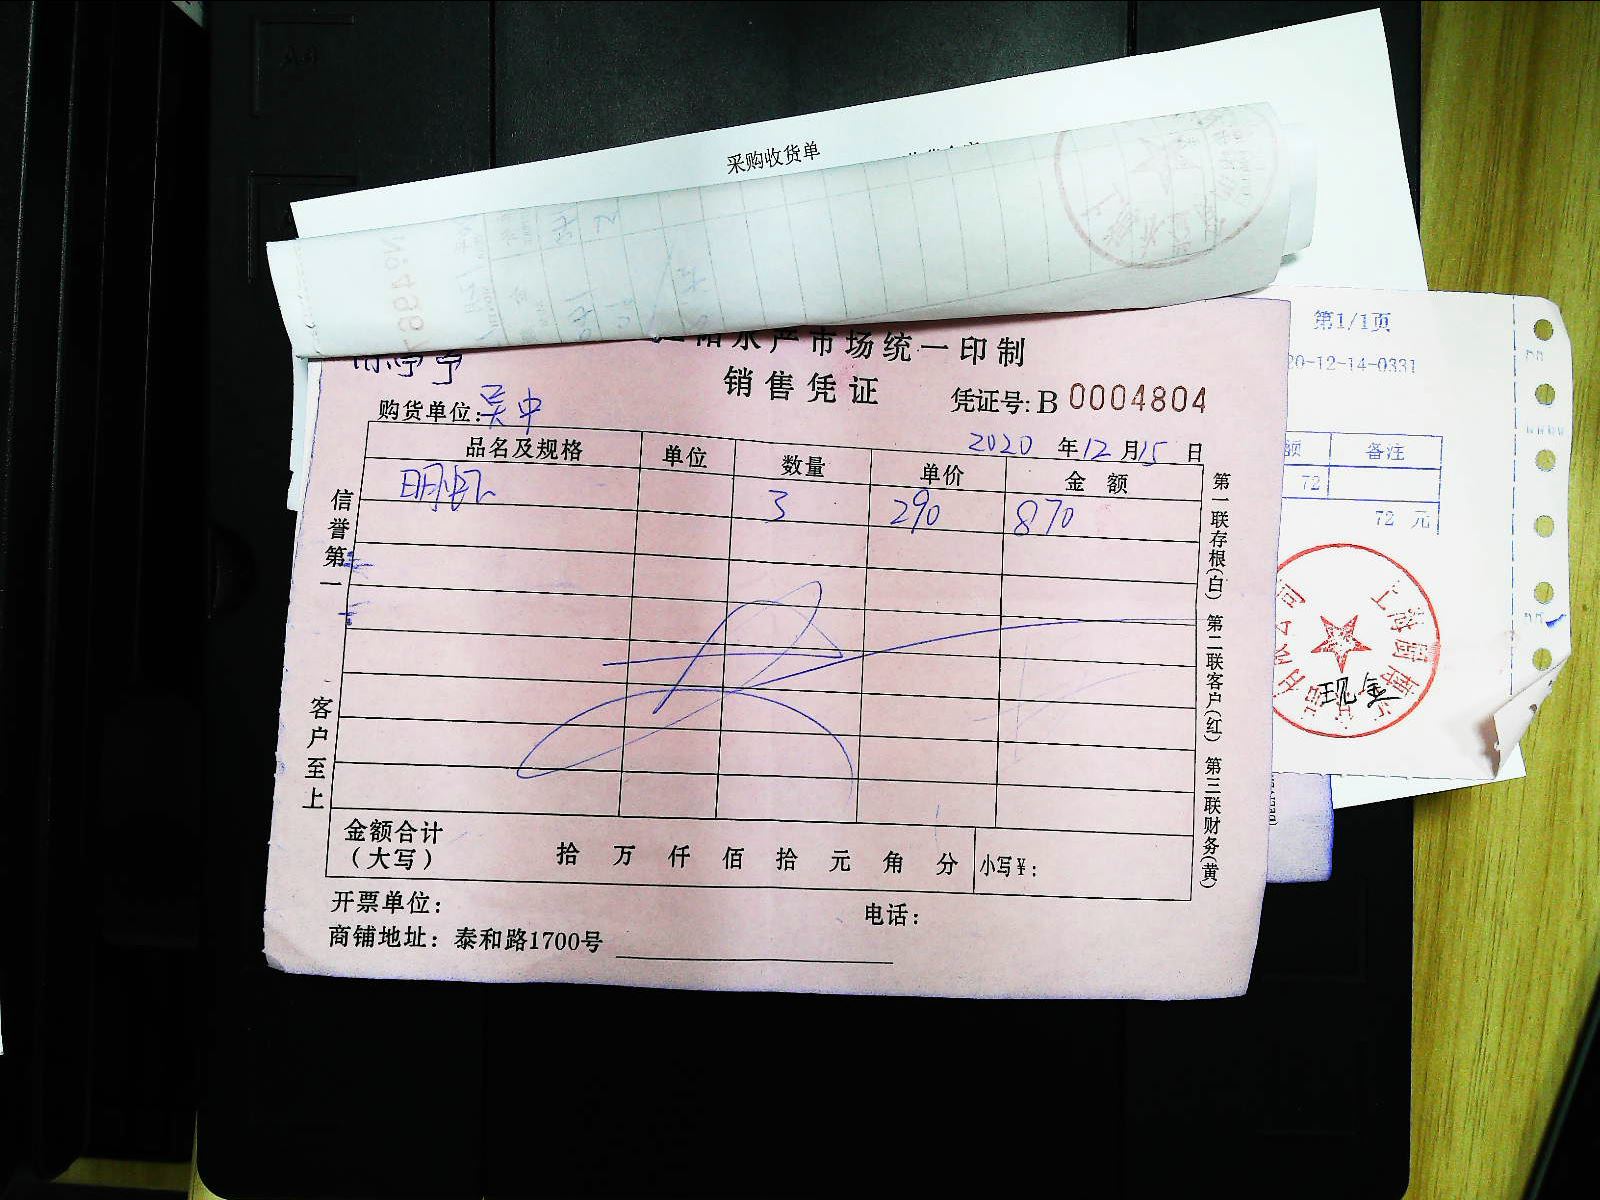 采购收货单
第1/1页
20-12-14-0331
水产市场统一印制
销售凭证
凭证号: B 0004804
购货单位: 吴中
2020 年 12 月 15 日
品名及规格 单位 数量 单价 金额
明虾 3 290 870
信誉第一
客户至上
第一联存根(白) 第二联客户(红) 第三联财务(黄)
金额合计
(大写)
拾 万 仟 佰 拾 元 角 分 小写¥:
开票单位:
电话:
商铺地址: 泰和路1700号
额 备注
72
72 元
现金